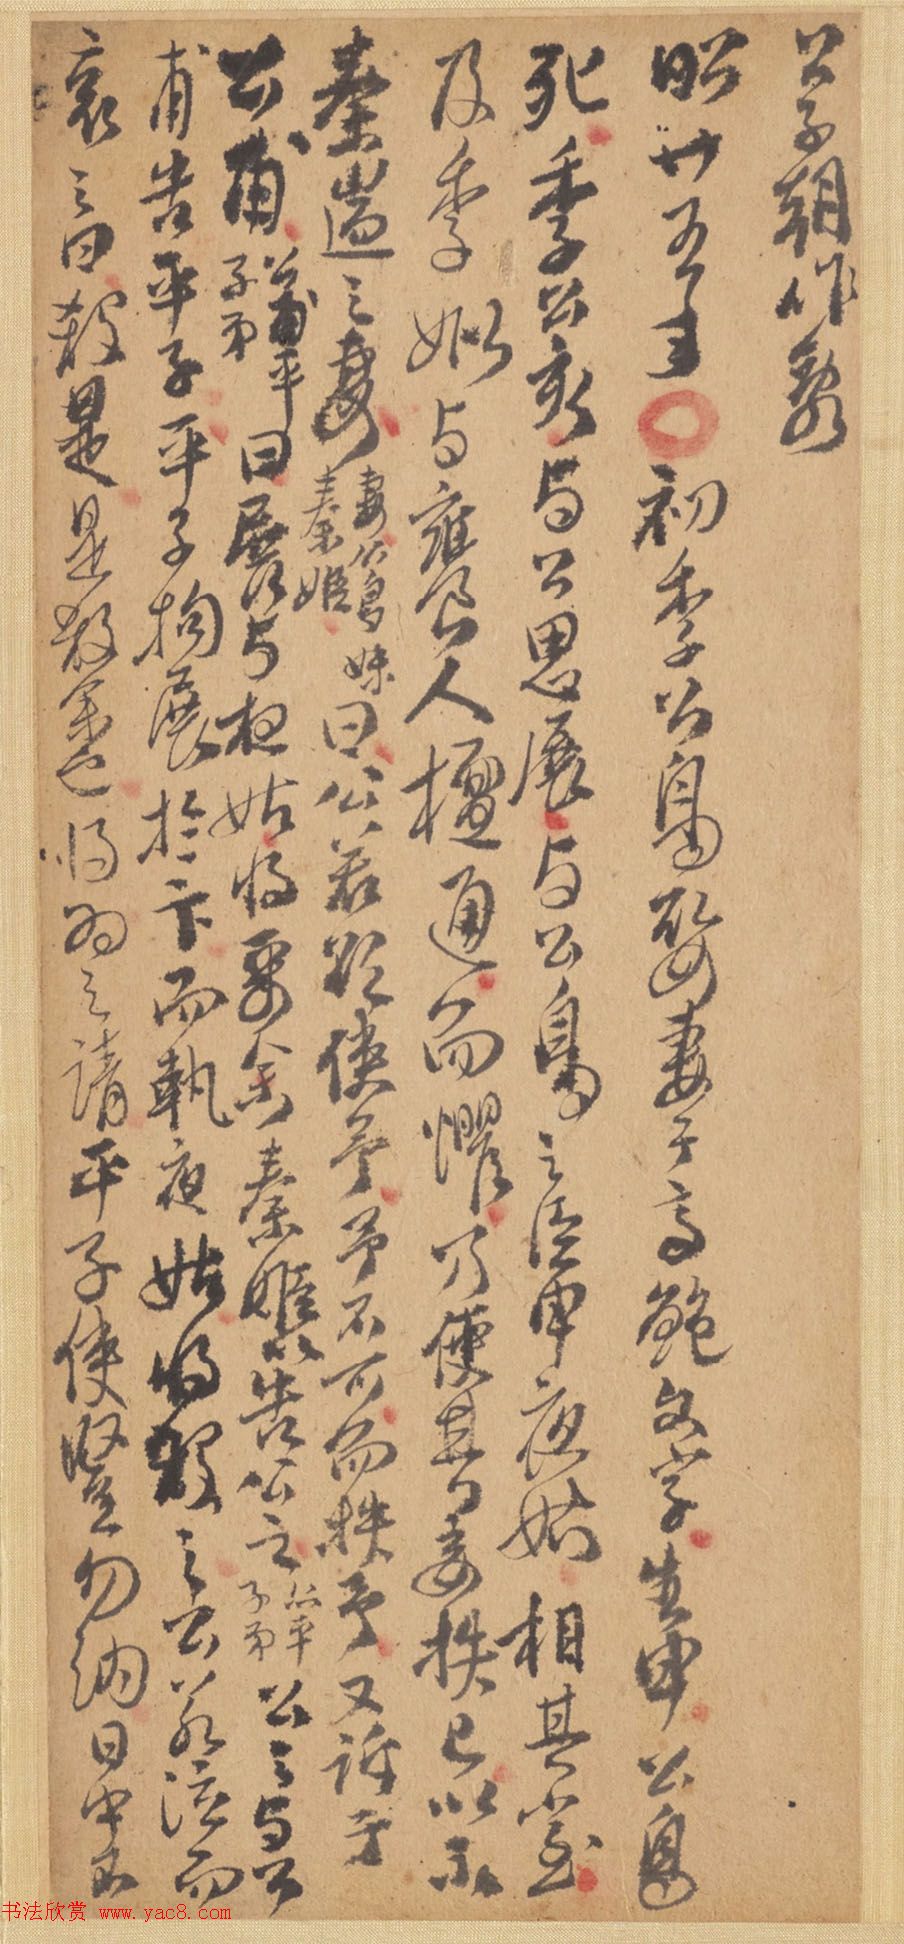 公子朝作亂
昭廿五年 初季公鳥娶妻于齊鮑文字生申公鳥
死季公亥与公思展与公鳥之臣申夜姑相其室
及季姒与饔人檀通而懼乃使其妾抶己以示
秦遄之妻 妻公鳥妹秦姬 曰公若欲使余余不可而抶余又訴于
公甫 公甫平子弟 曰展与夜姑將要余秦姬以告公之 公之平子弟 公之与公
甫告平子平子拘展於卞而執夜姑將殺之公若泣而
哀之曰殺是是殺余也將為之請平子使豎勿納日中不
书法欣赏 www.yac8.com